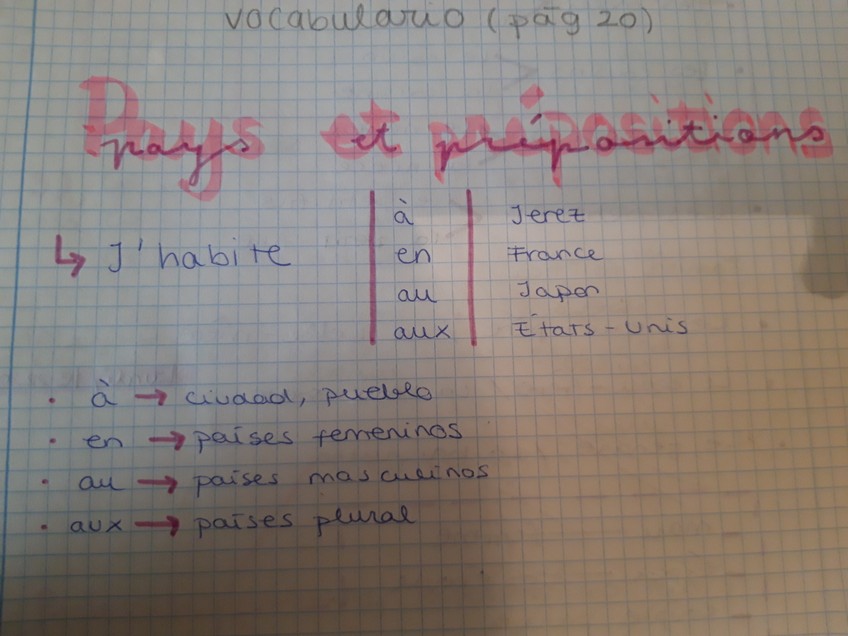 vocabulario (pág 20)
Pays et prépositions
↳ J'habite
à Jerez
en France
au Japon
aux États-Unis
· à → ciudad, pueblo
· en → países femeninos
· au → países masculinos
· aux → países plural